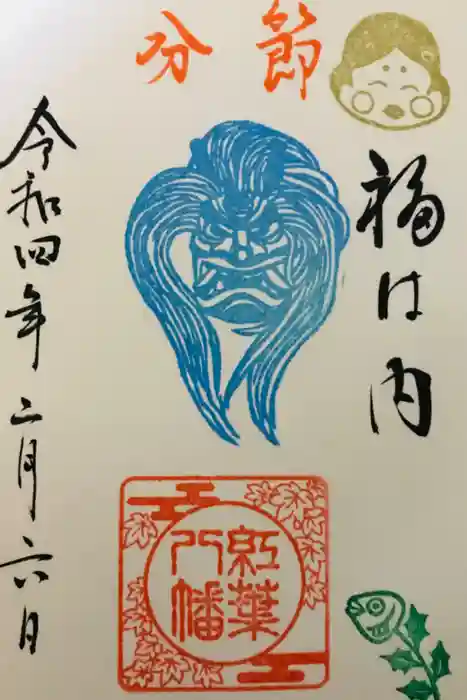 節分
福は内
紅葉八幡
令和四年二月六日